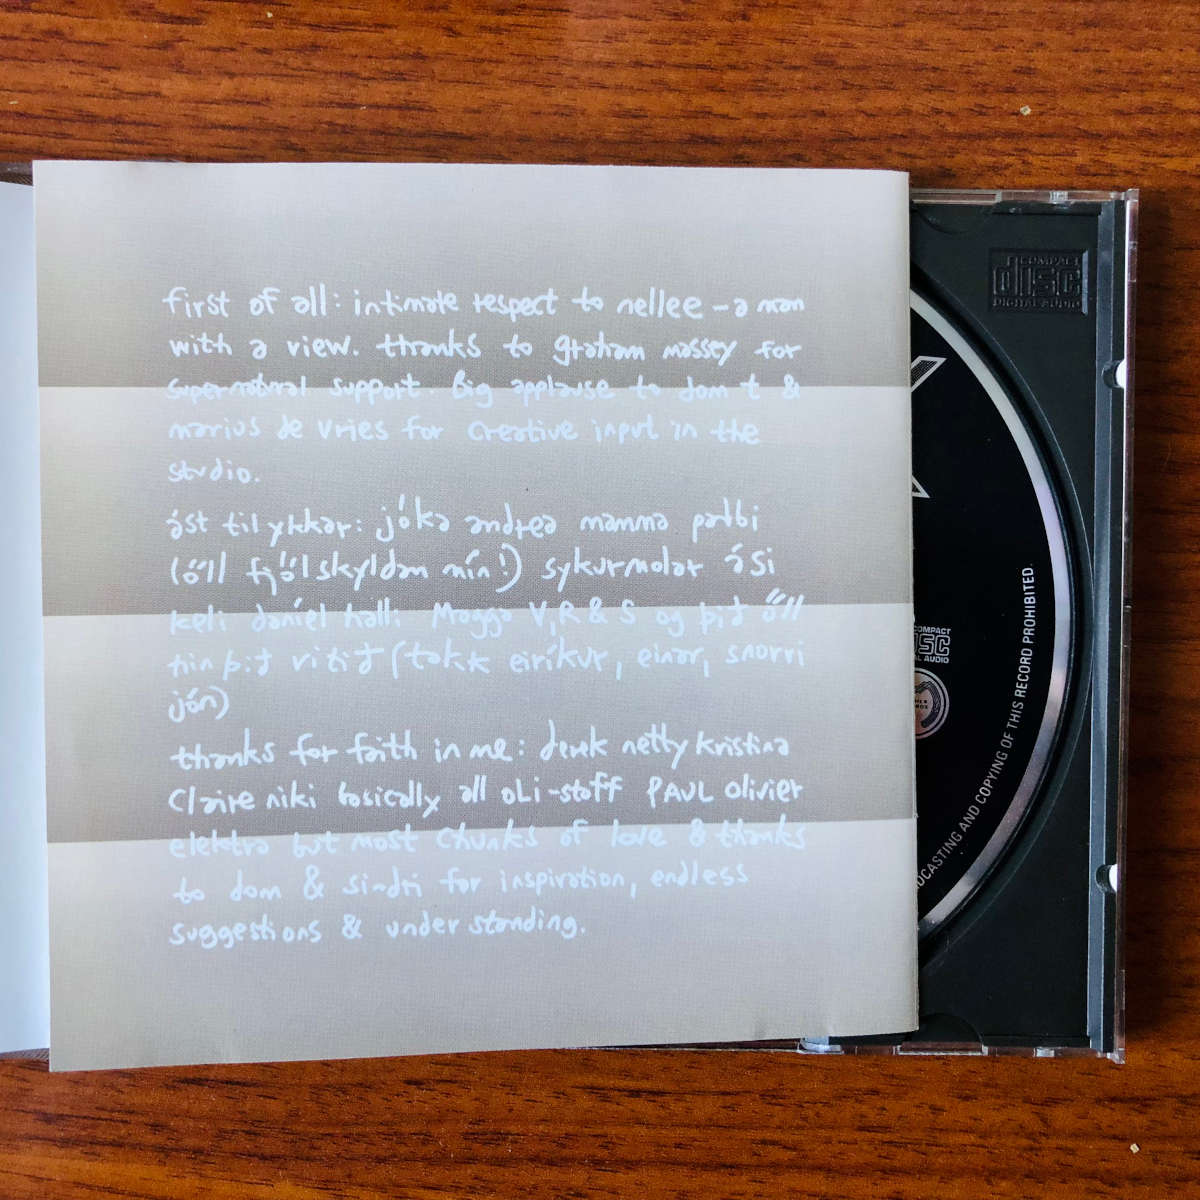 first of all: intimate respect to nellee – a man
with a view. thanks to graham massey for
supernatural support. Big applause to dom t &
marius de vries for creative input in the
studio.
ást til ykkar: jóka andrea mamma pabbi
(öll fjölskyldan mín!) sykurmolar ási
keli daníel hall: Moggo V, R & S og þið öll
hin þið vitið (takk eiríkur, einar, snorri
jón)
thanks for faith in me: derek netty kristina
Claire niki basically all OLI-staff PAUL Olivier
elektra but most chunks of love & thanks
to dom & sindri for inspiration, endless
suggestions & understanding.
COMPACT
DISC
DIGITAL AUDIO
COMPACT
DISC
AL AUDIO
OADCASTING AND COPYING OF THIS RECORD PROHIBITED.